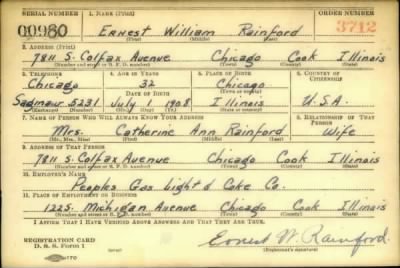 SERIAL NUMBER 1. NAME (Print) ORDER NUMBER
00980 ERNEST William Rainford 3712
(First) (Middle) (Last)
2. ADDRESS (Print)
7811 S. Colfax Avenue Chicago Cook Illinois
(Number and street or R. F. D. number) (Town) (County) (State)
3. TELEPHONE 4. AGE IN YEARS 5. PLACE OF BIRTH 6. COUNTRY OF CITIZENSHIP
Chicago 32 Chicago
DATE OF BIRTH (Town or county)
5231 July 1 1908 Illinois U.S.A.
(Exchange) (Number) (Mo.) (Day) (Yr.) (State or country)
7. NAME OF PERSON WHO WILL ALWAYS KNOW YOUR ADDRESS 8. RELATIONSHIP OF THAT PERSON
Mrs. Catherine Ann Rainford Wife
(Mr., Mrs., Miss) (First) (Middle) (Last)
9. ADDRESS OF THAT PERSON
7811 S. Colfax Avenue Chicago Cook Illinois
(Number and street or R. F. D. number) (Town) (County) (State)
10. EMPLOYER'S NAME
Peoples Gas Light & Coke Co.
11. PLACE OF EMPLOYMENT OR BUSINESS
122 S. Michigan Avenue Chicago Cook Illinois
(Number and street or R. F. D. number) (Town) (County) (State)
I AFFIRM THAT I HAVE VERIFIED ABOVE ANSWERS AND THAT THEY ARE TRUE.
REGISTRATION CARD
D. S. S. Form 1 Ernest W. Rainford.
(Registrant's signature)